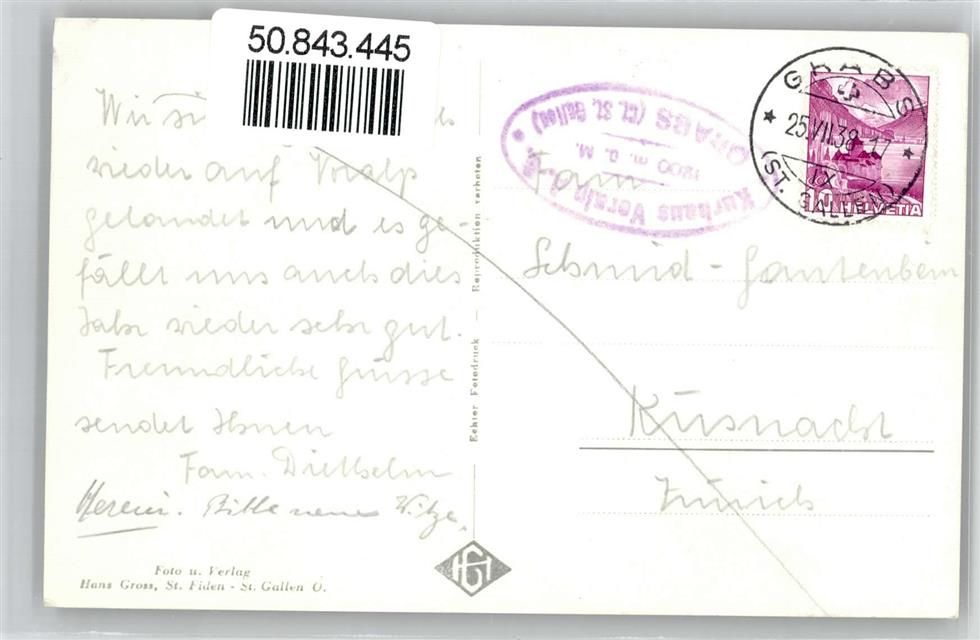 50.843.445
Wir si
wieder auf Voralp
gelandet und es ge-
fällt uns auch dies
Jahr wieder sehr gut.
Freundliche Grüsse
sendet Ihnen
Fam. Diethelm
Bitte neue Witze.
Foto u. Verlag
Hans Gross, St. Fiden - St. Gallen O.
Echter Fotodruck — Reproduktion verboten
HG
Kurhaus Voralp
1200 m. ü. M.
GRABS (Ct. St. Gallen)
GRABS
25.VII.38
IX
(ST. GALLEN)
10 HELVETIA
Fam.
Schmid - Gantenbein
Küsnacht
Zürich